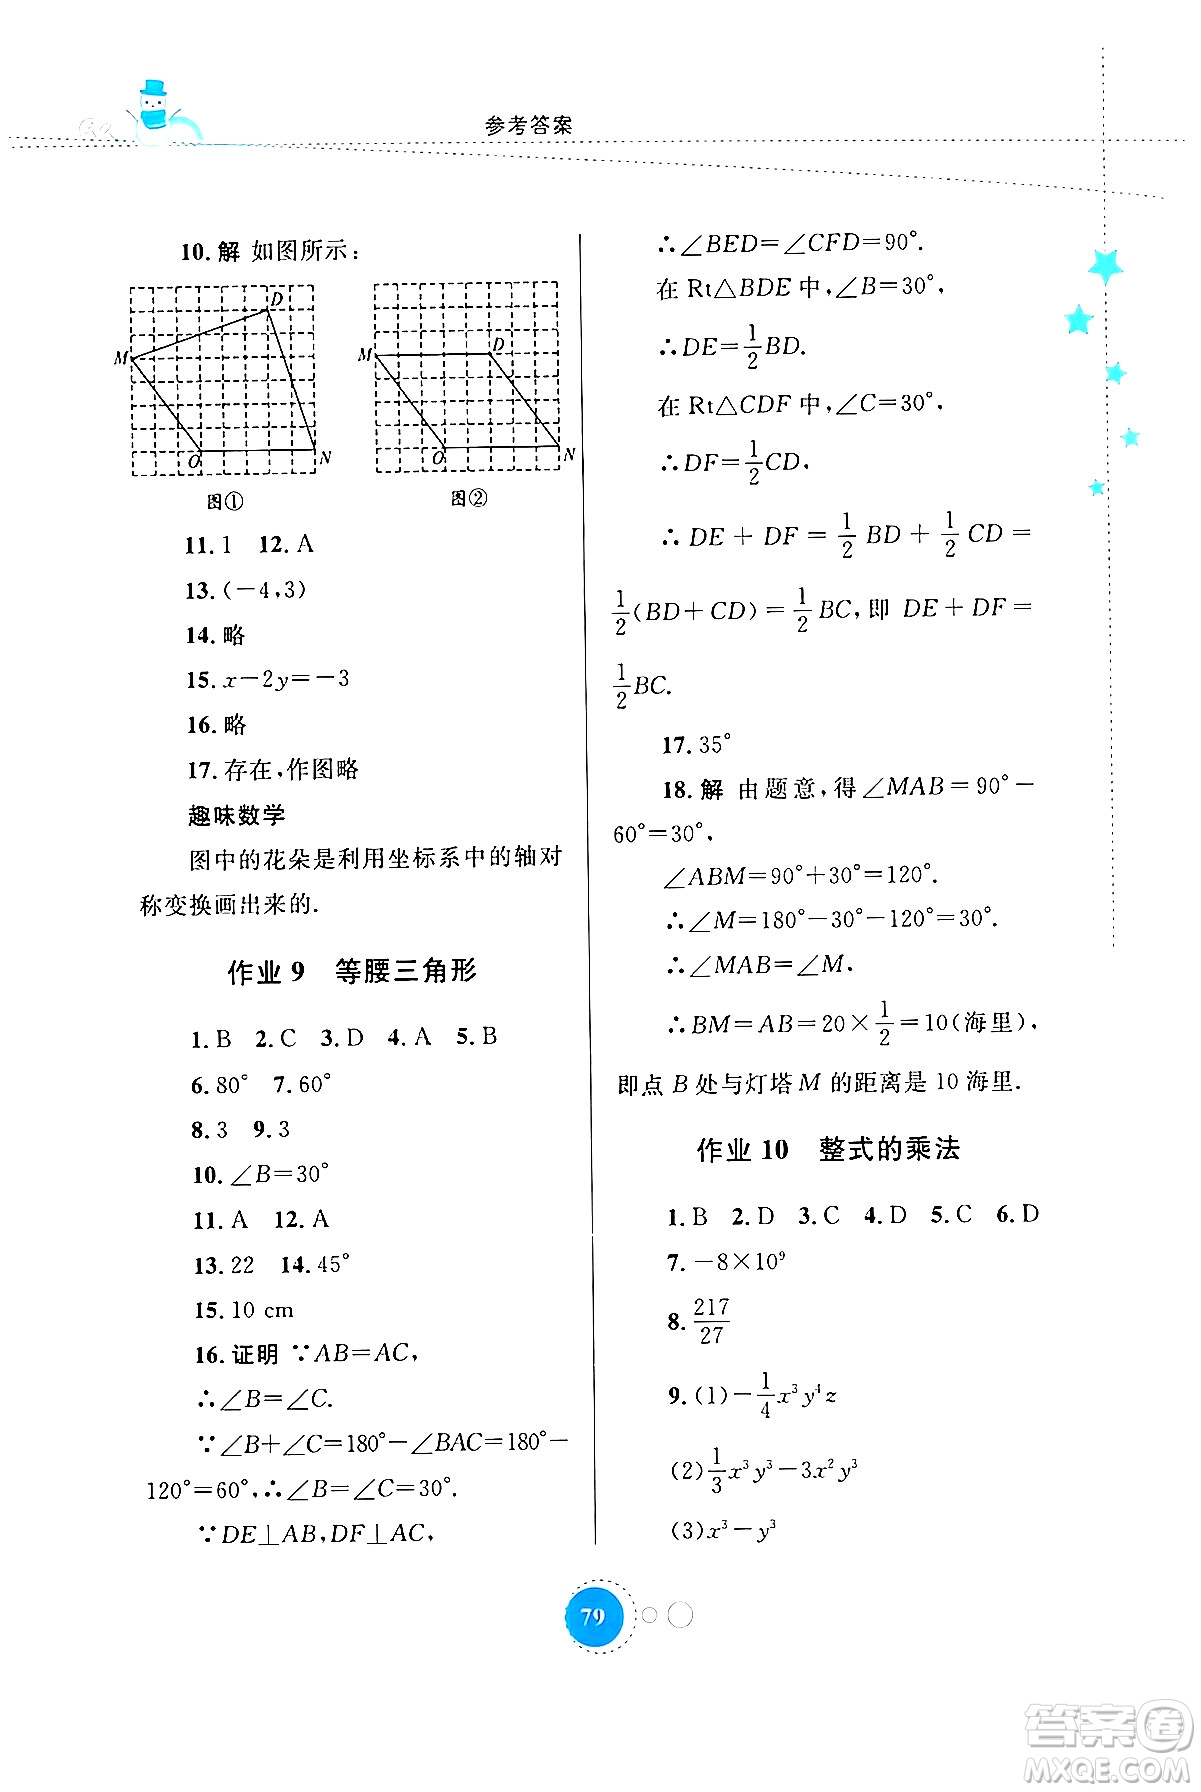 参考答案
10.解 如图所示:
D
M
O
N
图①
M
D
O
N
图②
11.1 12.A
13.(-4,3)
14.略
15.x-2y=-3
16.略
17.存在,作图略
趣味数学
图中的花朵是利用坐标系中的轴对
称变换画出来的.
作业 9 等腰三角形
1.B 2.C 3.D 4.A 5.B
6.80° 7.60°
8.3 9.3
10.∠B=30°
11.A 12.A
13.22 14.45°
15.10 cm
16.证明 ∵AB=AC,
∴∠B=∠C.
∵∠B+∠C=180°-∠BAC=180°-
120°=60°,∴∠B=∠C=30°.
∵DE⊥AB,DF⊥AC,
∴∠BED=∠CFD=90°.
在 Rt△BDE 中,∠B=30°,
∴DE=1/2BD.
在 Rt△CDF 中,∠C=30°,
∴DF=1/2CD,
∴DE+DF=1/2BD+1/2CD=
1/2(BD+CD)=1/2BC,即 DE+DF=
1/2BC.
17.35°
18.解 由题意,得∠MAB=90°-
60°=30°,
∠ABM=90°+30°=120°.
∴∠M=180°-30°-120°=30°.
∴∠MAB=∠M.
∴BM=AB=20×1/2=10(海里),
即点 B 处与灯塔 M 的距离是 10 海里.
作业 10 整式的乘法
1.B 2.D 3.C 4.D 5.C 6.D
7.-8×10⁹
8.217/27
9.(1)-1/4x³y⁴z
(2)1/3x³y³-3x²y³
(3)x³-y³
79
答案卷
MXQE.COM